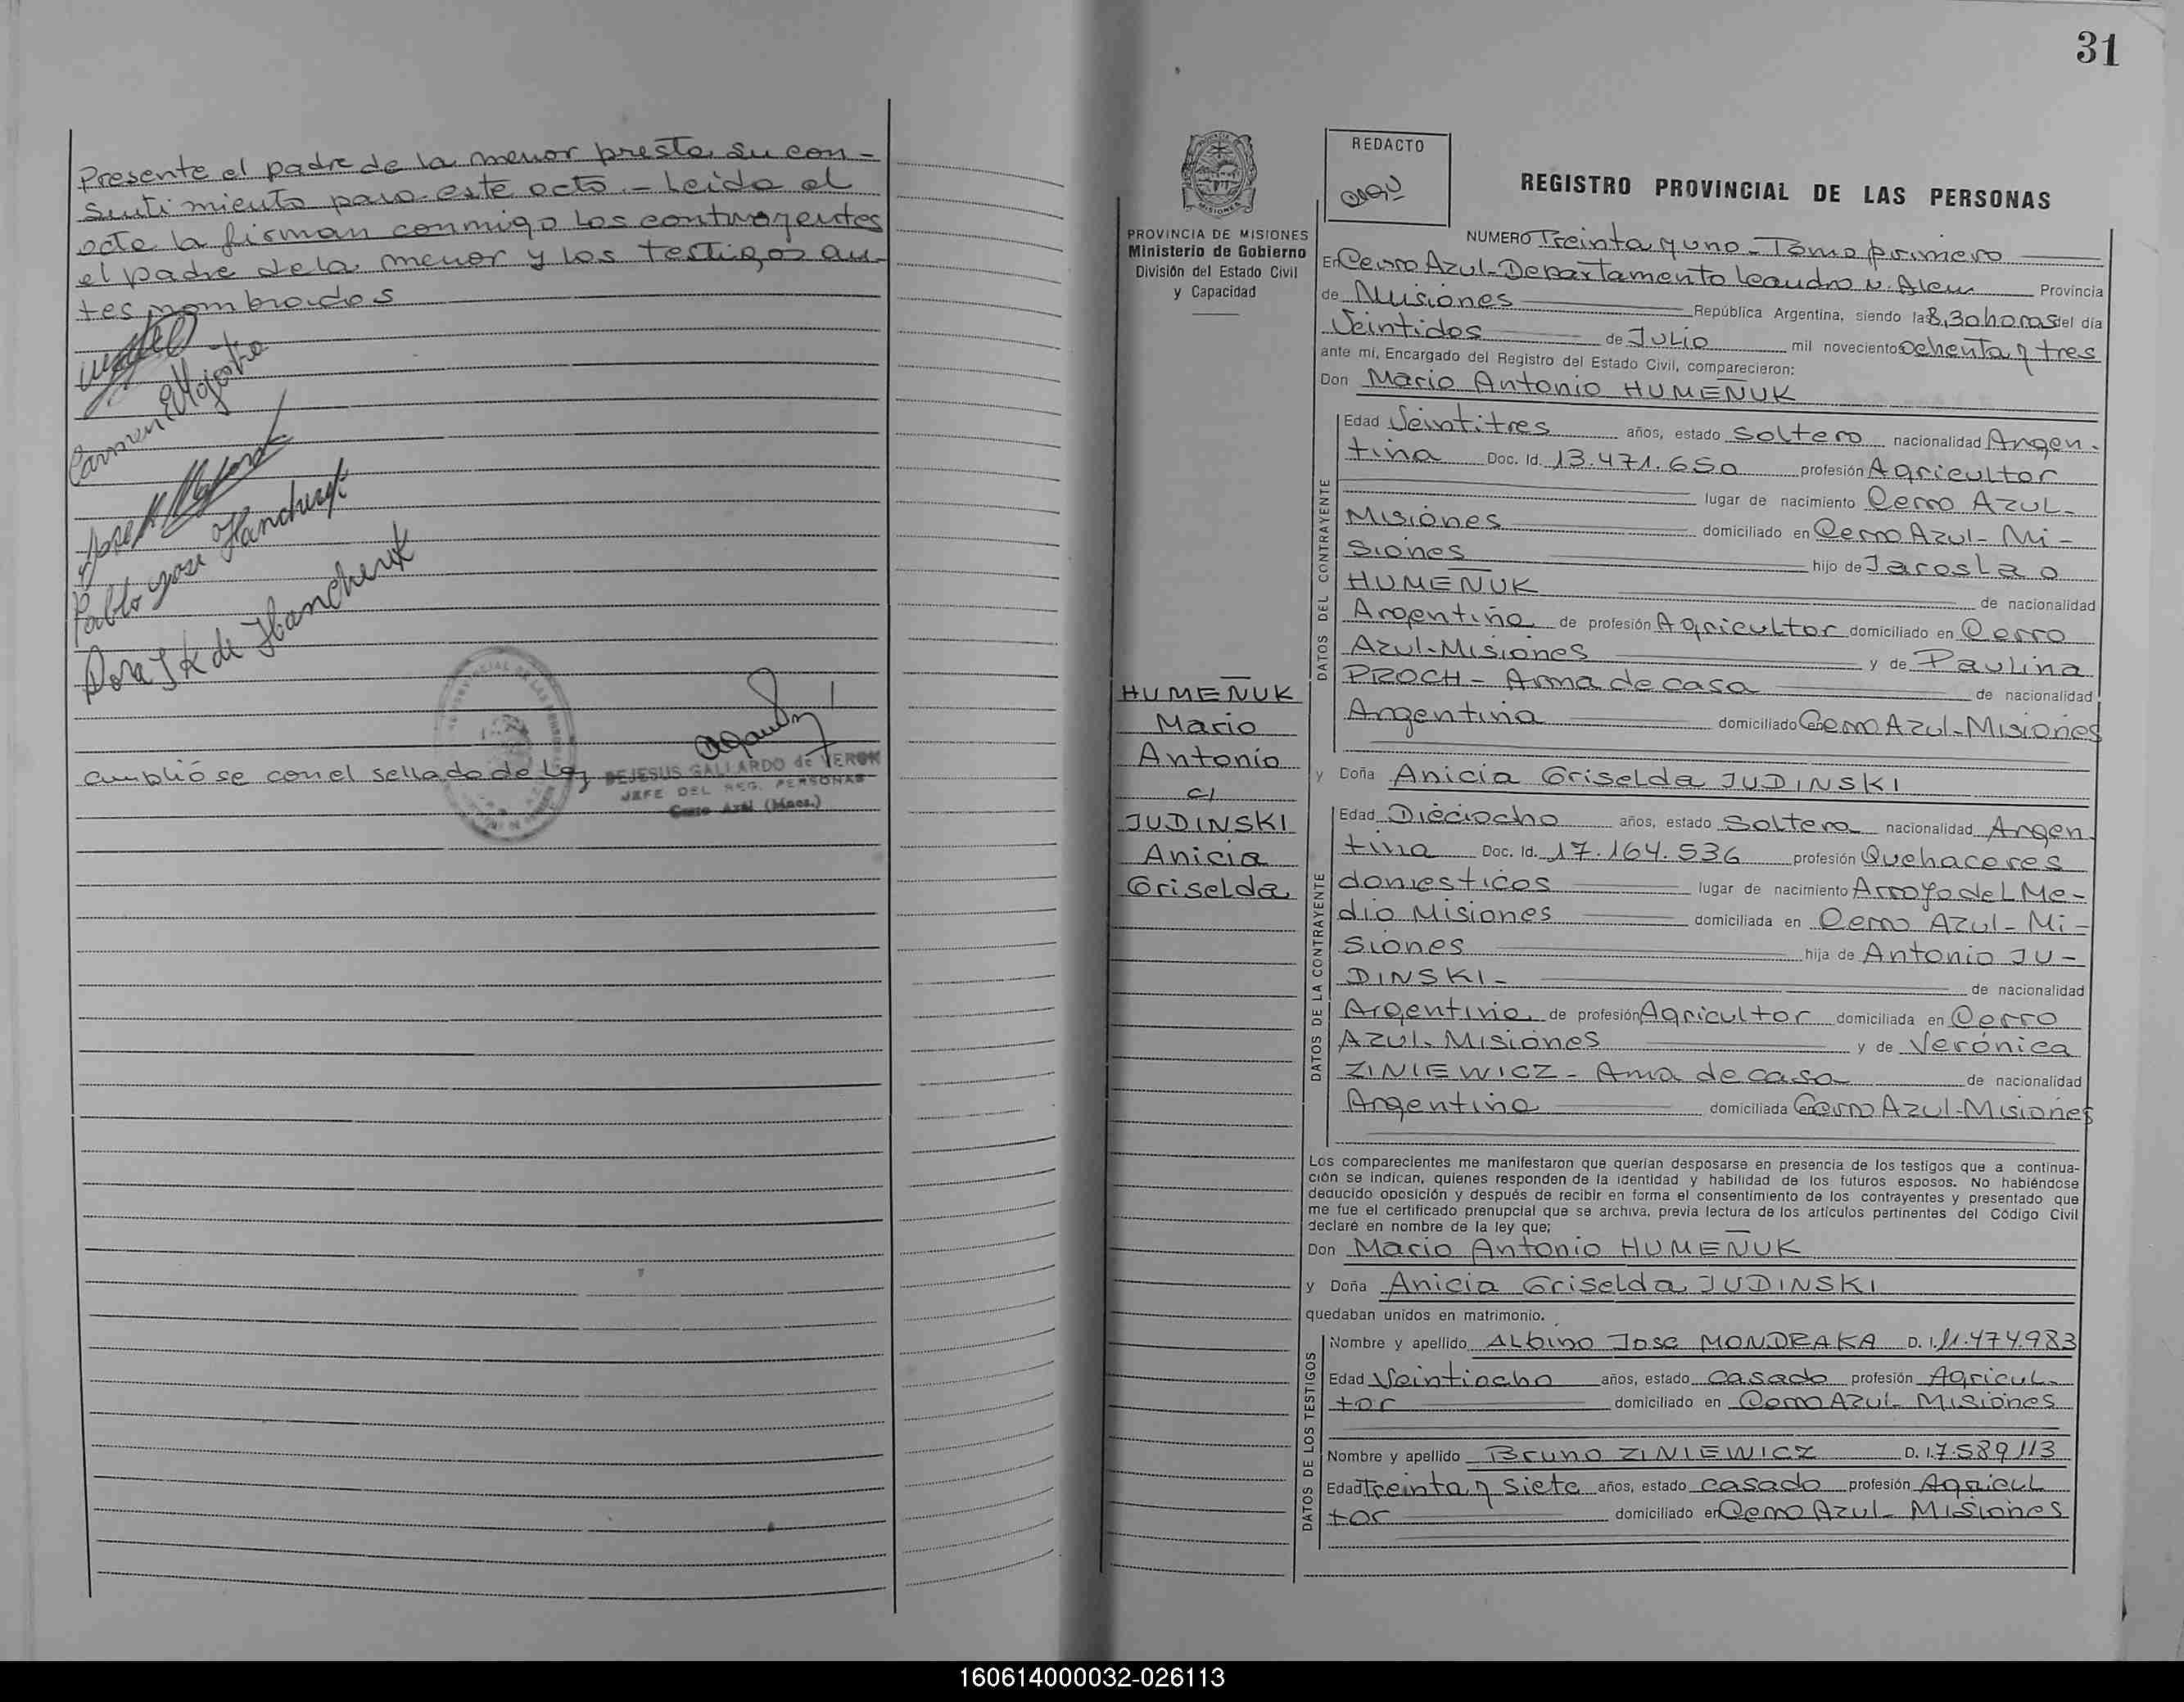 Presente el padre de la menor presta su con-
sentimiento para este acto.- Leida el
acta la firman conmigo los contrayentes
el padre de la menor y los testigos an-
tes nombrados
Pablo Jose Hancheruk
Dora J K de Hancheruk
cumplióse con el sellado de Ley
DEJESUS GALLARDO de VERON
JEFE DEL REG. PERSONAS
Cerro Azul (Mnes.)
31
PROVINCIA DE MISIONES
Ministerio de Gobierno
División del Estado Civil
y Capacidad
HUMEÑUK
Mario
Antonio
c/
JUDINSKI
Anicia
Griselda
REDACTO
REGISTRO PROVINCIAL DE LAS PERSONAS
NUMERO Treinta y uno - Tomo primero
En Cerro Azul-Departamento Leandro N. Alem Provincia
de Misiones República Argentina, siendo las 8,30 horas del día
Veintidos de Julio mil novecientos ochenta y tres
ante mí, Encargado del Registro del Estado Civil, comparecieron:
Don Mario Antonio HUMEÑUK
DATOS DEL CONTRAYENTE
Edad Veintitres años, estado soltero nacionalidad Argen-
tina Doc. Id. 13.471.650 profesión Agricultor
lugar de nacimiento Cerro AZUL-
Misiones domiciliado en Cerro Azul- Mi-
siones hijo de Jaroslao
HUMEÑUK de nacionalidad
Argentina de profesión Agricultor domiciliado en Cerro
Azul-Misiones y de Paulina
PROCH - Ama de casa de nacionalidad
Argentina domiciliado en Cerro Azul-Misiones
y Doña Anicia Griselda JUDINSKI
DATOS DE LA CONTRAYENTE
Edad Dieciocho años, estado soltera nacionalidad Argen-
tina Doc. Id. 17.164.536 profesión Quehaceres
domesticos lugar de nacimiento Arroyo del Me-
dio Misiones domiciliada en Cerro Azul- Mi-
siones hija de Antonio JU-
DINSKI- de nacionalidad
Argentina de profesión Agricultor domiciliada en Cerro
Azul- Misiones y de Verónica
ZINIEWICZ - Ama de casa de nacionalidad
Argentina domiciliada en Cerro Azul-Misiones
Los comparecientes me manifestaron que querían desposarse en presencia de los testigos que a continua-
ción se indican, quienes responden de la identidad y habilidad de los futuros esposos. No habiéndose
deducido oposición y después de recibir en forma el consentimiento de los contrayentes y presentado que
me fue el certificado prenupcial que se archiva, previa lectura de los artículos pertinentes del Código Civil
declaré en nombre de la ley que;
Don Mario Antonio HUMEÑUK
y Doña Anicia Griselda JUDINSKI
quedaban unidos en matrimonio.
DATOS DE LOS TESTIGOS
Nombre y apellido Albino Jose MONDRAKA D. I. 11.474.983
Edad Veintiocho años, estado casado profesión Agricul-
tor domiciliado en Cerro Azul- Misiones
Nombre y apellido Bruno ZINIEWICZ D. I. 7.589113
Edad Treinta y siete años, estado casado profesión Agricul
tor domiciliado en Cerro Azul- Misiones
160614000032-026113